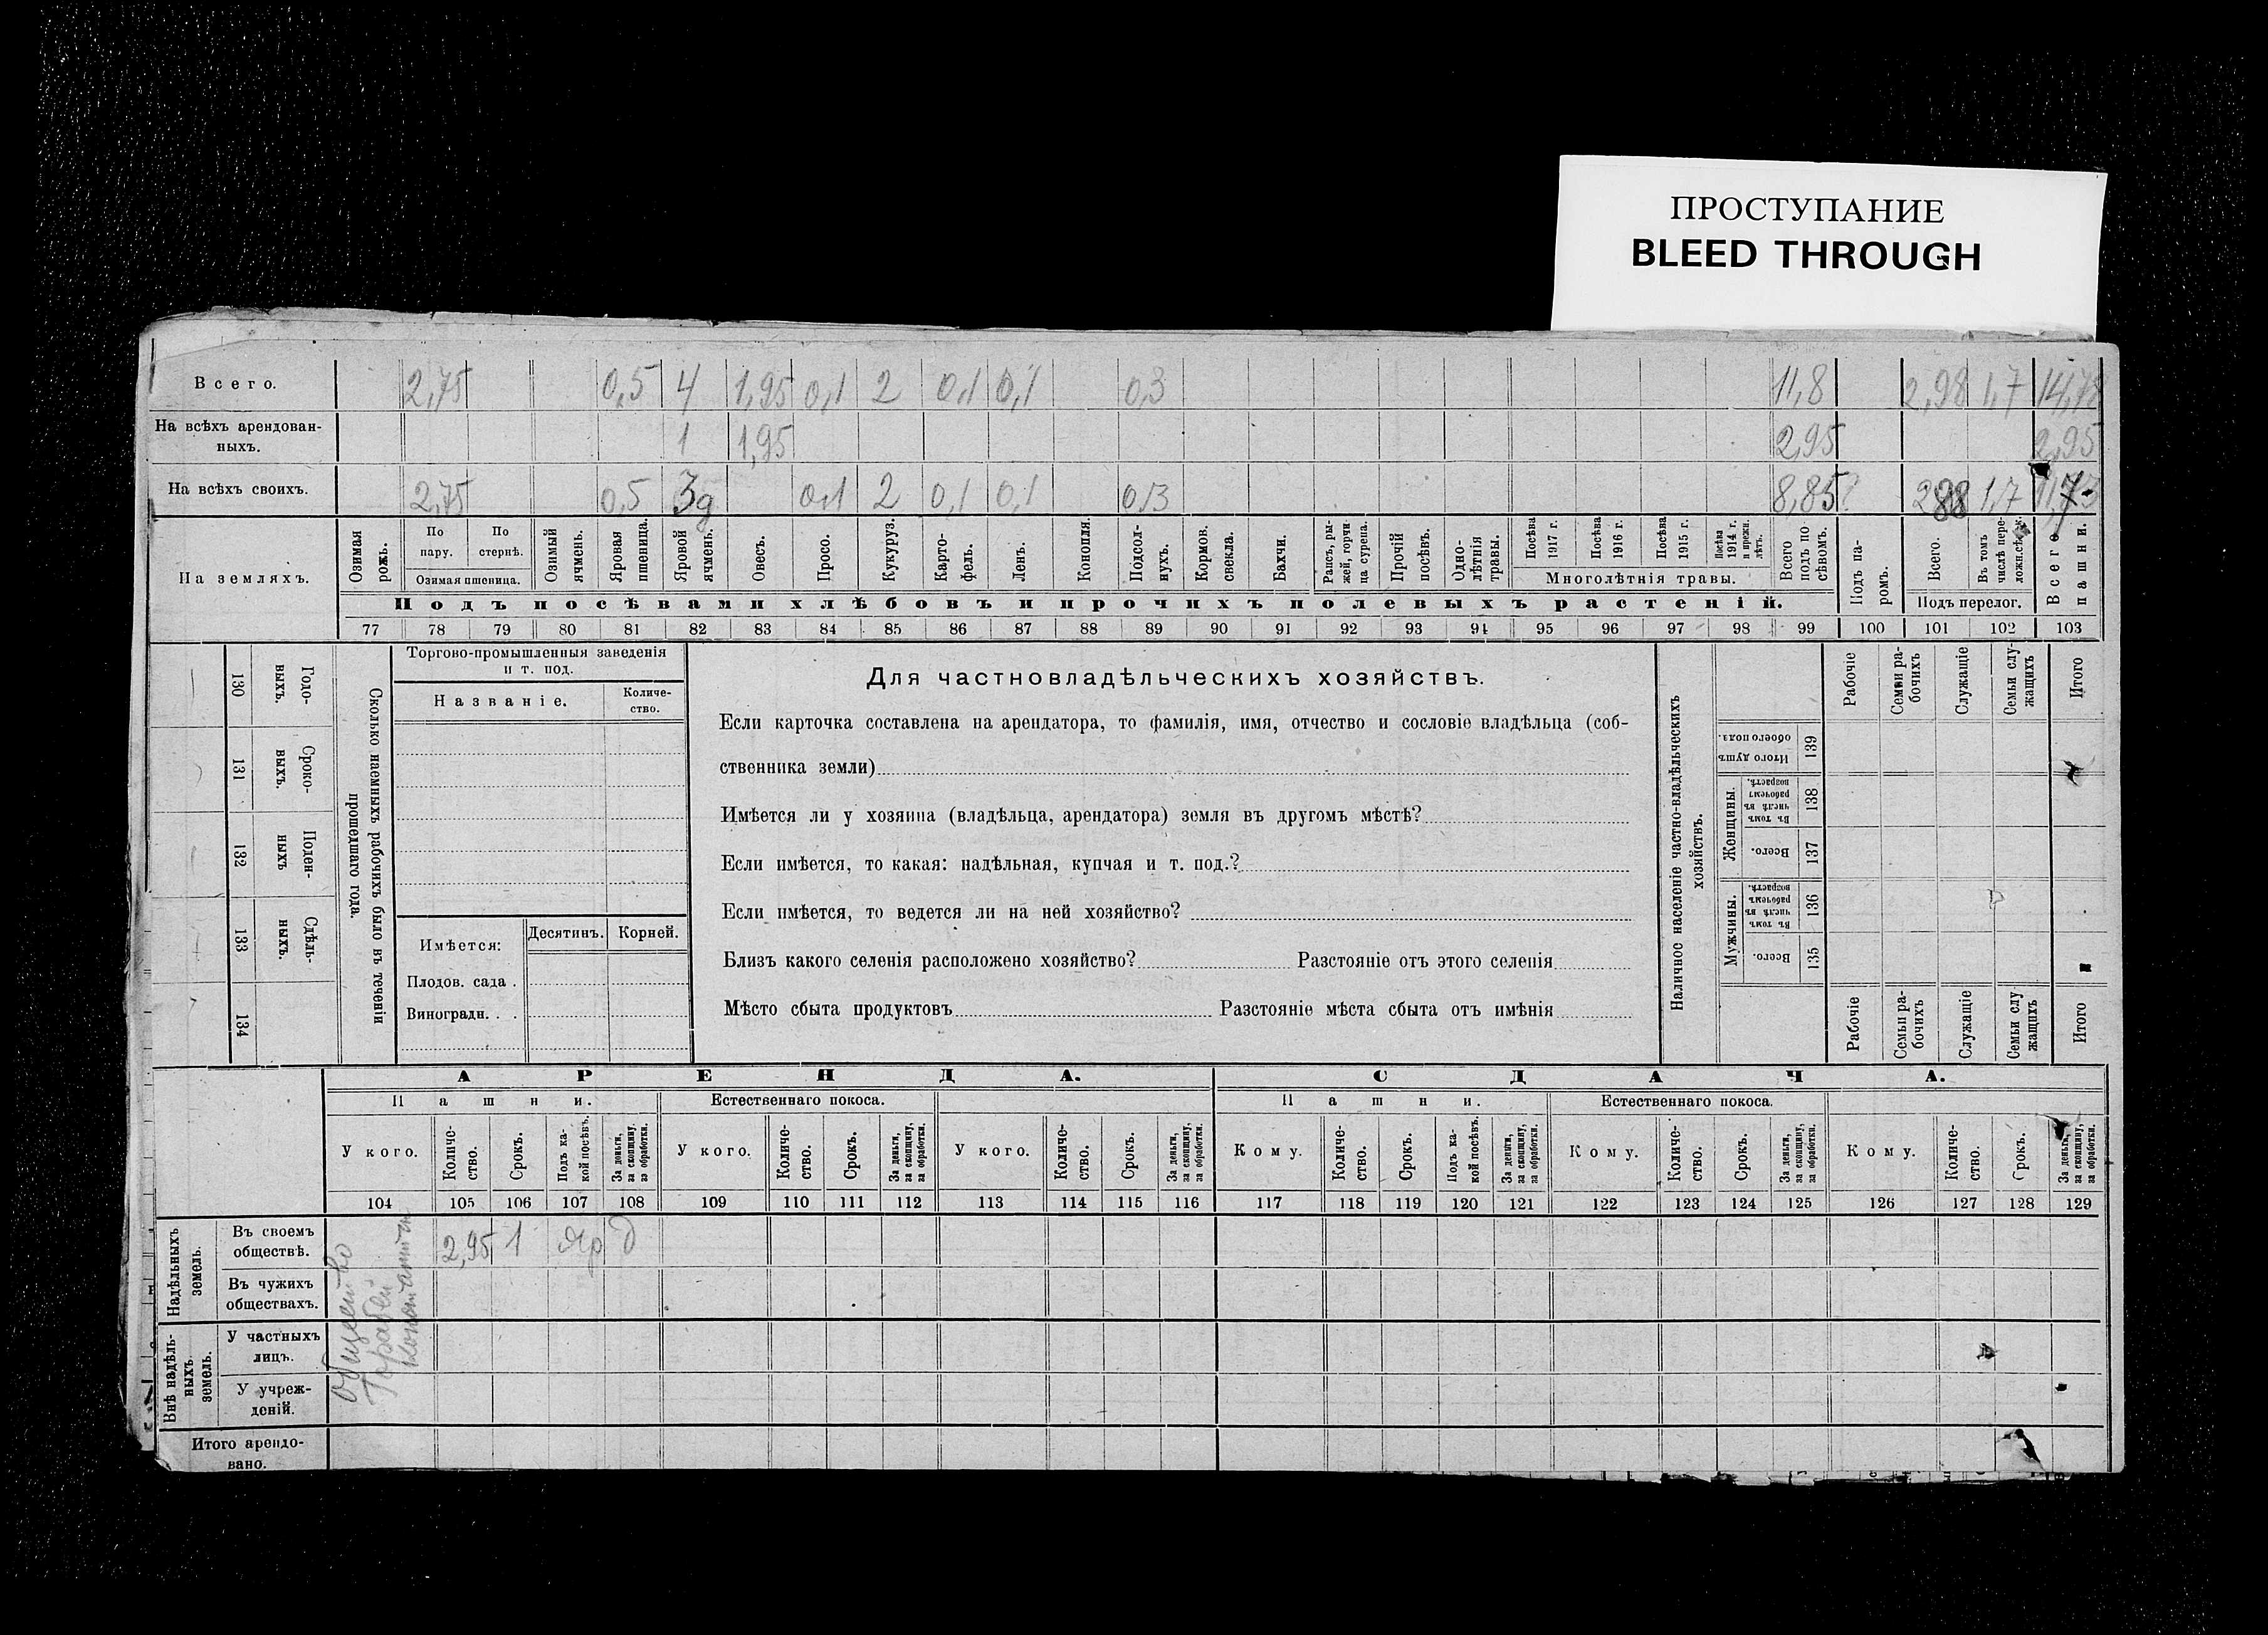 ПРОСТУПАНИЕ
BLEED THROUGH
Всего. 2,75 0,5 4 1,95 0,1 2 0,1 0,1 0,3 11,8 2,98 1,7 14,78
На всѣхъ арендован-
ныхъ. 1 1,95 2,95 2,95
На всѣхъ своихъ. 2,75 0,5 3 0,1 2 0,1 0,1 0,3 8,85 1,7
На земляхъ.
Озимая рожь.
По пару.
По стернѣ.
Озимая пшеница.
Озимый ячмень.
Яровая пшеница.
Яровой ячмень.
Овесъ.
Просо.
Кукуруз.
Карто-
фель.
Ленъ.
Конопля.
Подсол-
нухъ.
Кормов. свекла.
Бахчи.
Рапсъ, ры-
жей, горчи-
ца сурепа.
Прочій посѣвъ.
Одно-
лѣтнія травы.
Посѣва 1917 г.
Посѣва 1916 г.
Посѣва 1915 г.
Посѣва 1914 г. и прежн. лѣтъ.
Многолѣтнія травы.
Всего подъ по-
сѣвомъ.
Подъ посѣвами хлѣбовъ и прочихъ полевыхъ растеній.
Подъ па-
ромъ.
Всего.
Въ томъ числѣ пере-
Подъ перелог.
Всего пашни.
77 78 79 80 81 82 83 84 85 86 87 88 89 90 91 92 93 94 95 96 97 98 99 100 101 102 103
Годо-
выхъ.
130
Сроко-
выхъ.
131
Поден-
ныхъ
132
Сдѣль-
ныхъ.
133
134
Сколько наемныхъ рабочихъ было въ теченіи
прошедшаго года.
Торгово-промышленныя заведенія
и т. под.
Названіе.
Количе-
ство.
Имѣется:
Десятинъ.
Корней.
Плодов. сада .
Виноградн. . .
Для частновладѣльческихъ хозяйствъ.
Если карточка составлена на арендатора, то фамилія, имя, отчество и сословіе владѣльца (соб-
ственника земли)
Имѣется ли у хозяина (владѣльца, арендатора) земля въ другомъ мѣстѣ?
Если имѣется, то какая: надѣльная, купчая и т. под.?
Если имѣется, то ведется ли на ней хозяйство?
Близъ какого селенія расположено хозяйство? Разстояніе отъ этого селенія
Мѣсто сбыта продуктовъ Разстояніе мѣста сбыта отъ имѣнія
Наличное населеніе частно-владѣльческихъ
хозяйствъ.
Итого душъ обоего пола.
139
Женщины.
Въ томъ числѣ въ рабочемъ возрастѣ.
138
Всего.
137
Мужчины.
Въ томъ числѣ въ рабочемъ возрастѣ.
136
Всего.
135
Рабочіе
Семьи ра-
бочихъ
Служащіе
Семьи слу-
жащихъ
Итого
Рабочіе
Семьи ра-
бочихъ
Служащіе
Семьи слу-
жащихъ
Итого
АРЕНДА. СДАЧА.
Пашни. Естественнаго покоса. Пашни. Естественнаго покоса.
У кого.
Количе-
ство.
Срокъ.
Подъ ка-
кой посѣвъ.
За деньги,
за скопщину,
за обработки.
У кого.
Количе-
ство.
Срокъ.
За деньги,
за скопщину,
за обработки.
У кого.
Количе-
ство.
Срокъ.
За деньги,
за скопщину,
за обработки.
Кому.
Количе-
ство.
Срокъ.
Подъ ка-
кой посѣвъ.
За деньги,
за скопщину,
за обработки.
Кому.
Количе-
ство.
Срокъ.
За деньги,
за скопщину,
за обработки.
Кому.
Количе-
ство.
Срокъ.
За деньги,
за скопщину,
за обработки.
104 105 106 107 108 109 110 111 112 113 114 115 116 117 118 119 120 121 122 123 124 125 126 127 128 129
Надѣльныхъ
земель.
Въ своемъ
обществѣ. 2,95 1 яр д
Въ чужихъ
обществахъ.
Общество
Внѣ надѣль-
ныхъ
земель.
У частныхъ
лицъ.
У учреж-
деній.
Итого арендо-
вано.